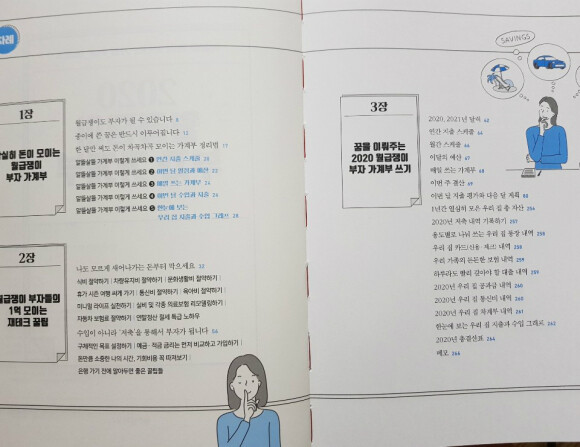 차례
1장
확실히 돈이 모이는
월급쟁이
부자 가계부
월급쟁이도 부자가 될 수 있습니다 8
종이에 쓴 꿈은 반드시 이루어집니다 12
한 달만 써도 돈이 차곡차곡 모이는 가계부 정리법 19
알뜰살뜰 가계부 이렇게 쓰세요 ❶ 연간 지출 스케줄 20
알뜰살뜰 가계부 이렇게 쓰세요 ❷ 이번 달 결산과 예산 22
알뜰살뜰 가계부 이렇게 쓰세요 ❸ 매일 쓰는 가계부 24
알뜰살뜰 가계부 이렇게 쓰세요 ❹ 이번 달 수입과 지출 26
알뜰살뜰 가계부 이렇게 쓰세요 ❺ 한눈에 보는
우리 집 지출과 수입 그래프 28
2장
월급쟁이 부자들의
1억 모이는
재테크 꿀팁
나도 모르게 새어나가는 돈부터 막으세요 32
식비 절약하기 | 차량유지비 절약하기 | 문화생활비 절약하기 |
휴가 시즌 여행 싸게 가기 | 통신비 절약하기 | 육아비 절약하기 |
미니멀 라이프 실천하기 | 실비 및 각종 의료보험 리모델링하기 |
자동차 보험료 절약하기 | 연말정산 절세 특급 노하우
수입이 아니라 '저축'을 통해서 부자가 됩니다 54
구체적인 목표 설정하기 | 예금·적금 금리는 먼저 비교하고 가입하기 |
돈만큼 소중한 나의 시간, 기회비용 꼭 따져보기 |
은행 가기 전에 알아두면 좋은 꿀팁들
SAVINGS
3장
꿈을 이뤄주는
2020 월급쟁이
부자 가계부 쓰기
2020, 2021년 달력 62
연간 지출 스케줄 64
월간 스케줄 66
이달의 예산 67
매일 쓰는 가계부 68
이번 주 결산 69
이번 달 지출 평가와 다음 달 계획 80
1년간 열심히 모은 우리 집 총 자산 256
2020년 저축 내역 기록하기 257
용도별로 나눠 쓰는 우리 집 통장 내역 257
우리 집 카드(신용·체크) 내역 258
우리 가족의 든든한 보험 내역 259
하루라도 빨리 갚아야 할 대출 내역 259
2020년 우리 집 공과금 내역 260
2020년 우리 집 통신비 내역 260
2020년 우리 집 차계부 내역 261
한눈에 보는 우리 집 지출과 수입 그래프 262
2020년 총결산표 264
메모 266